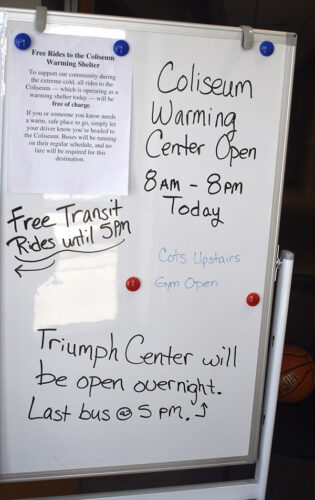 Free Rides to the Coliseum
Warming Shelter
To support our community during
the extreme cold, all rides to the
Coliseum — which is operating as a
warming shelter today — will be
free of charge.
If you or someone you know needs
a warm, safe place to go, simply let
your driver know you're headed to
the Coliseum. Buses will be running
on their regular schedule, and no
fare will be required for this
destination.
Coliseum
Warming
Center Open
8AM - 8PM
Today
Free Transit
Rides until 5PM
Cots Upstairs
Gym Open
Triumph Center will
be open overnight.
Last bus @ 5 PM.